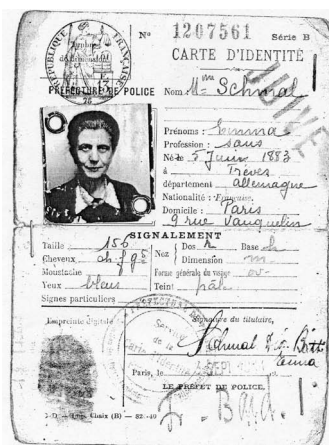 N° 1207561 Série B
CARTE D'IDENTITÉ
RÉPUBLIQUE FRANÇAISE
PRÉFECTURE DE POLICE
JUIVE
Nom : Mme Schmal
Prénoms : Emma
Profession : sans
Né le 5 Juin 1883
à Trèves
département allemagne
Nationalité : Française
Domicile : Paris
9 rue Vauquelin
SIGNALEMENT
Taille 156
Cheveux
Moustache
Yeux bleus
Signes particuliers
Nez
Dos Base
Dimension m
Forme générale du visage ov
Teint pâle
Empreinte digitale
Signature du titulaire,
Schmal
Emma
Paris, le
LE PRÉFET DE POLICE,
Imp. Chaix (B)